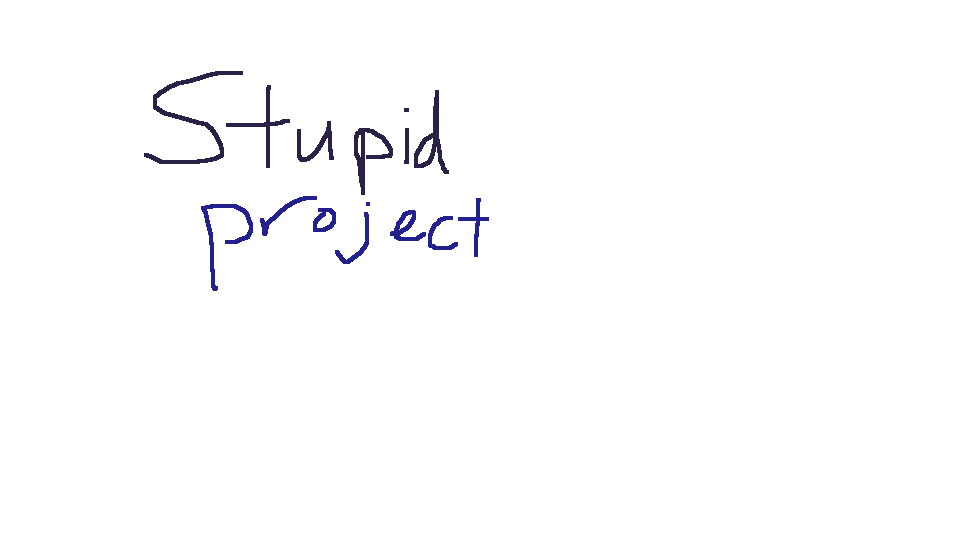 Stupid
project